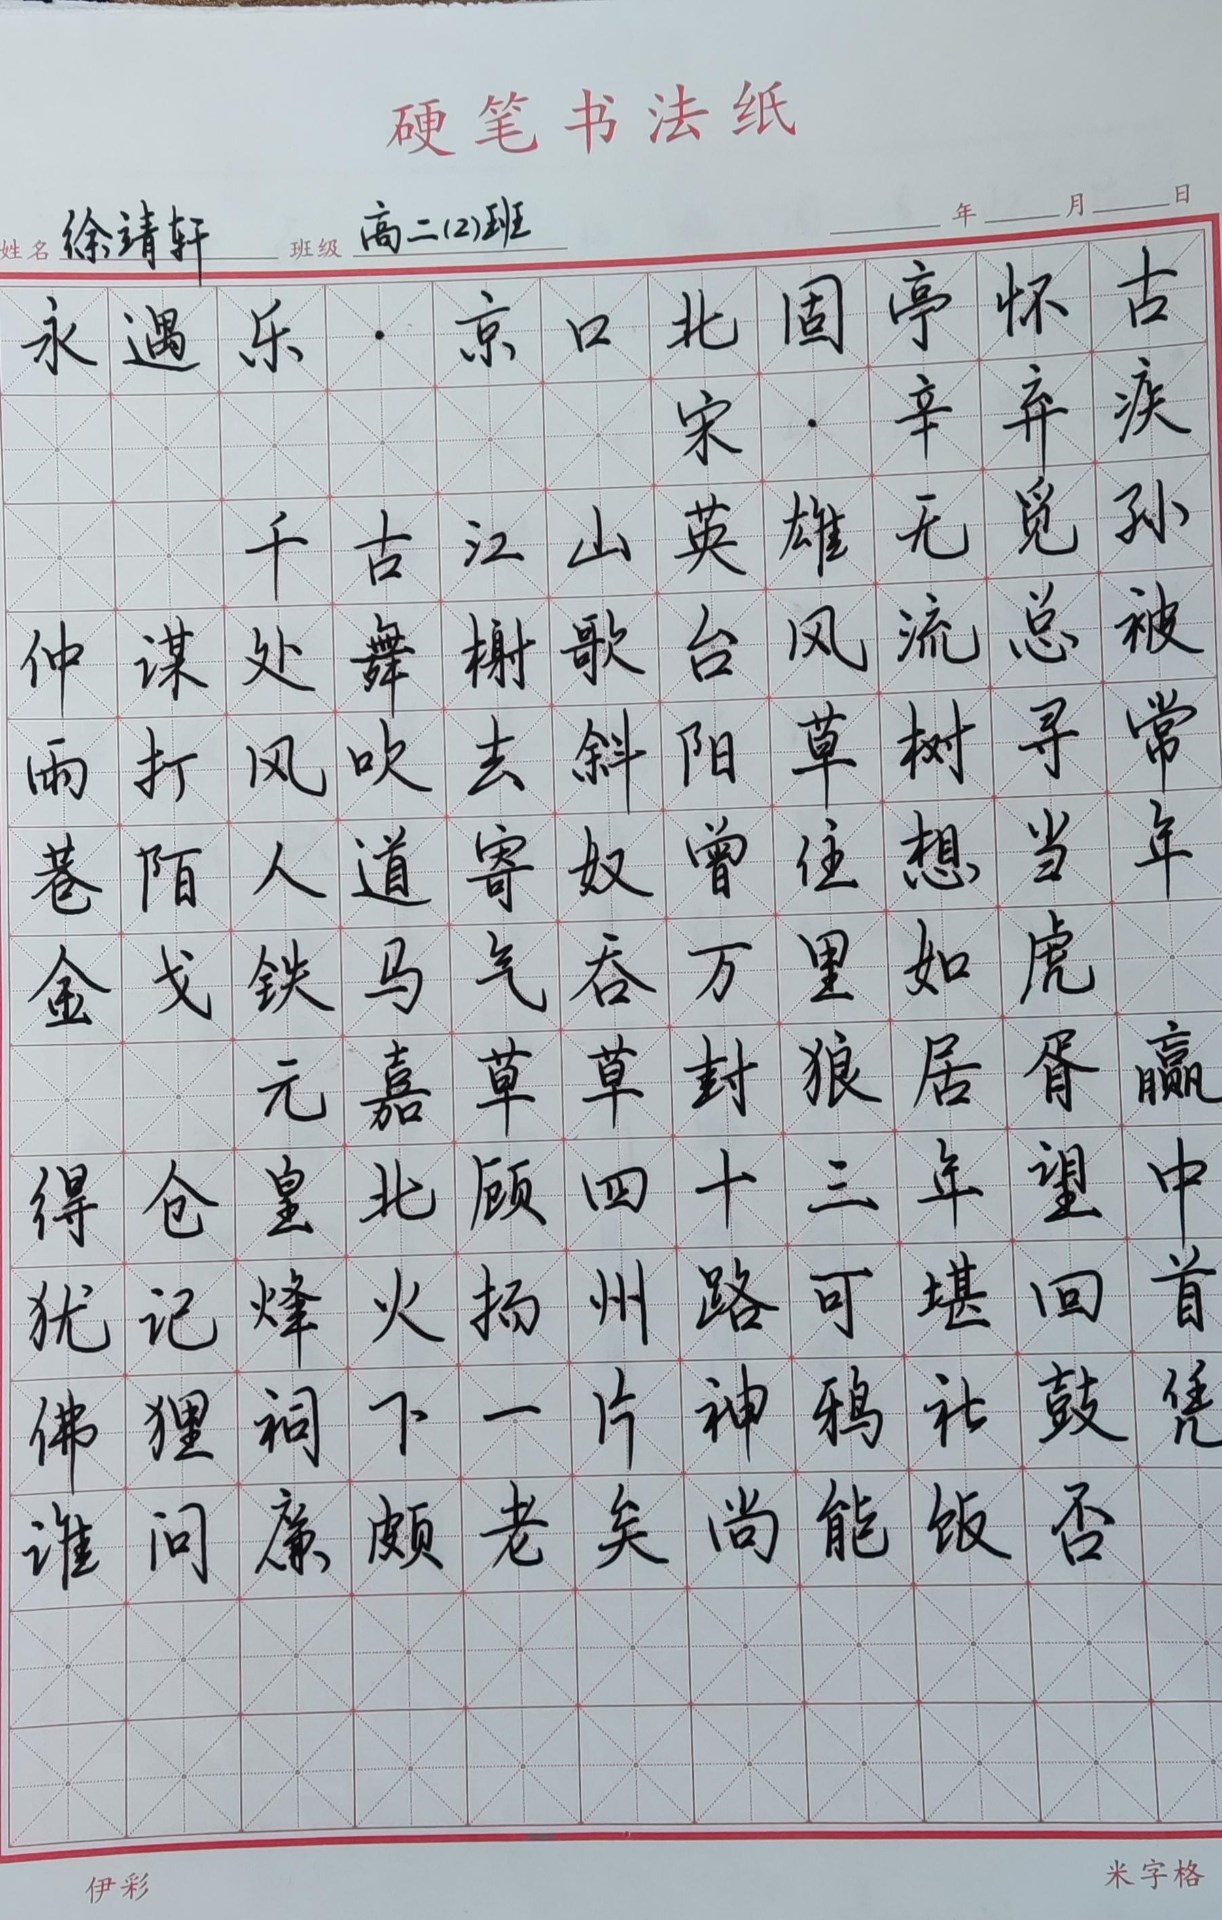 硬笔书法纸
姓名 徐靖轩 班级 高二(2)班 年 月 日
永遇乐·京口北固亭怀古
宋·辛弃疾
千古江山英雄无觅孙
仲谋处舞榭歌台风流总被
雨打风吹去斜阳草树寻常
巷陌人道寄奴曾住想当年
金戈铁马气吞万里如虎
元嘉草草封狼居胥赢
得仓皇北顾四十三年望中
犹记烽火扬州路可堪回首
佛狸祠下一片神鸦社鼓凭
谁问廉颇老矣尚能饭否
伊彩 米字格